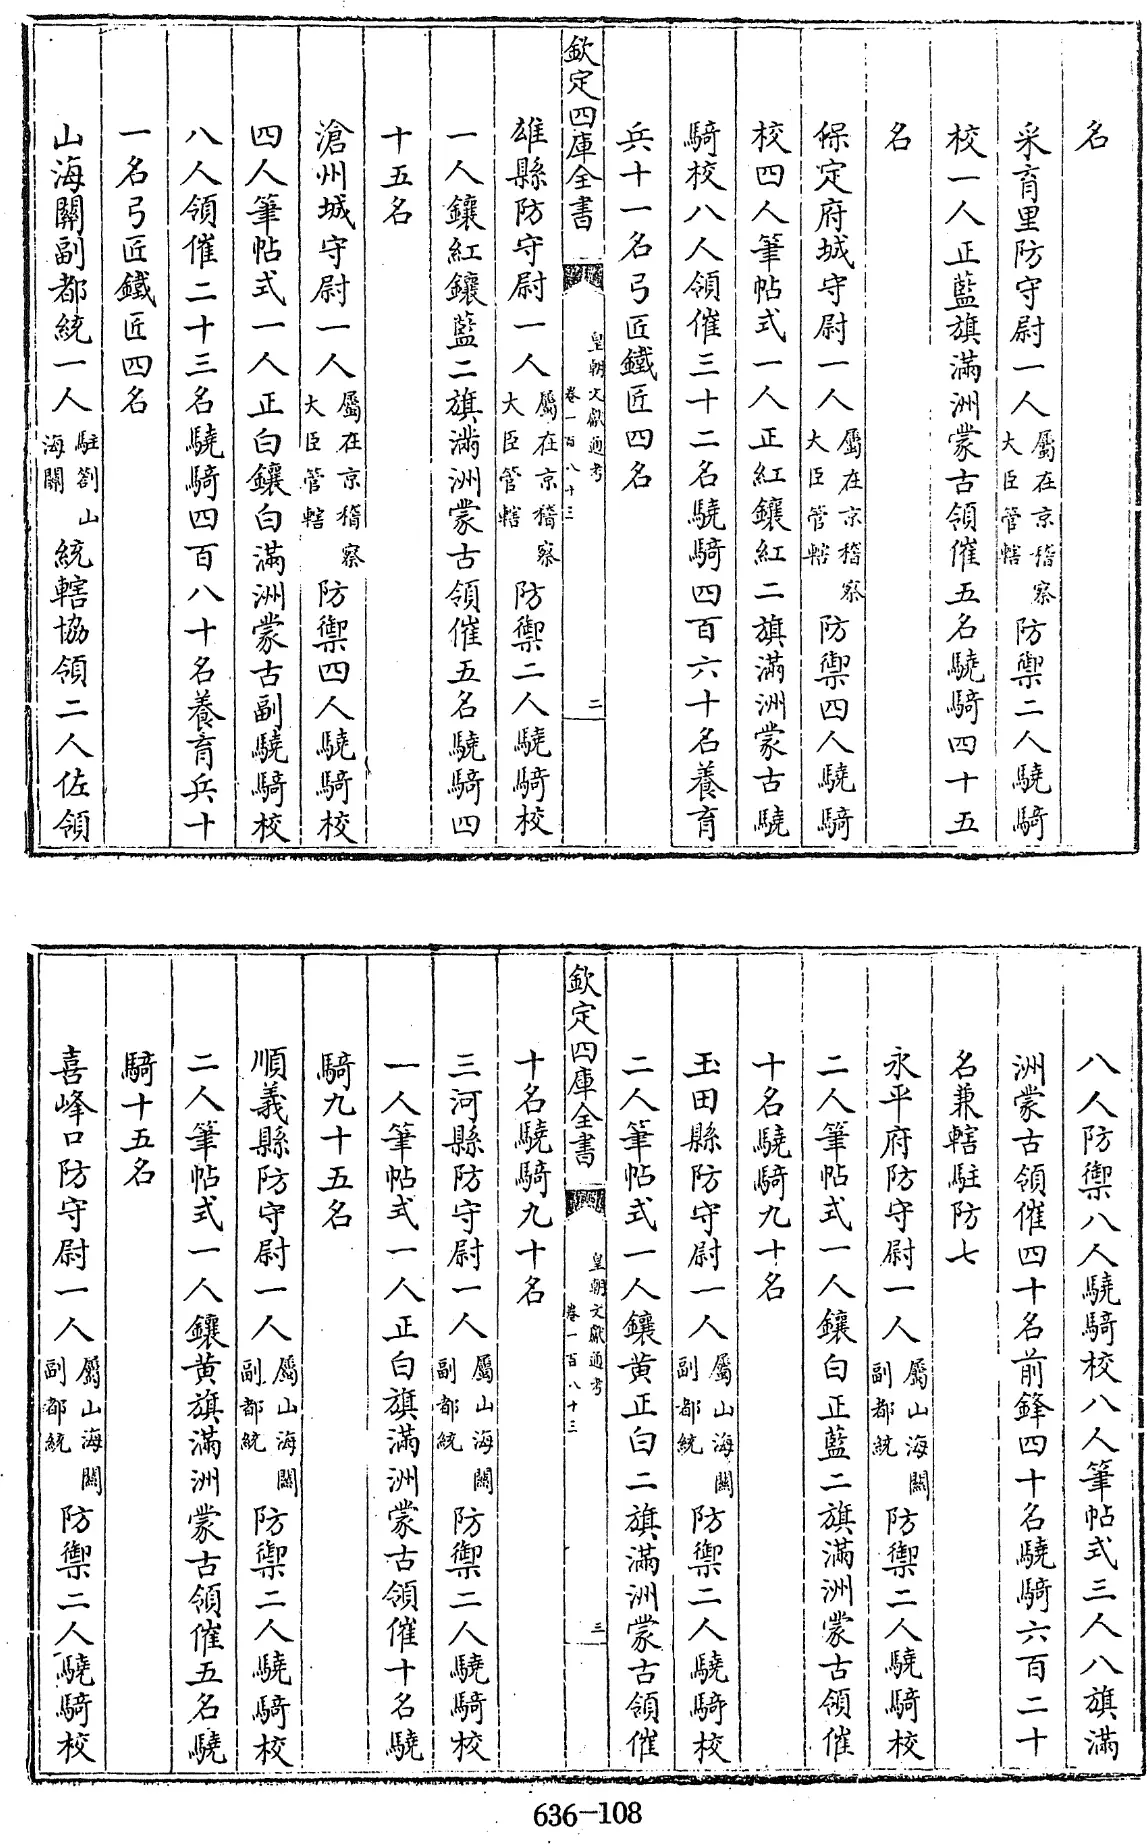 名
采育里防守尉一人屬在京稽察大臣管轄防禦二人驍騎
校一人正藍旗滿洲蒙古領催五名驍騎四十五
名
保定府城守尉一人屬在京稽察大臣管轄防禦四人驍騎
校四人筆帖式一人正紅鑲紅二旗滿洲蒙古驍
騎校八人領催三十二名驍騎四百六十名養育
兵十一名弓匠鐵匠四名
欽定四庫全書
皇朝文獻通考
卷一百八十三
二
雄縣防守尉一人屬在京稽察大臣管轄防禦二人驍騎校
一人鑲紅鑲藍二旗滿洲蒙古領催五名驍騎四
十五名
滄州城守尉一人屬在京稽察大臣管轄防禦四人驍騎校
四人筆帖式一人正白鑲白滿洲蒙古副驍騎校
八人領催二十三名驍騎四百八十名養育兵十
一名弓匠鐵匠四名
山海關副都統一人駐劄山海關統轄協領二人佐領
八人防禦八人驍騎校八人筆帖式三人八旗滿
洲蒙古領催四十名前鋒四十名驍騎六百二十
名兼轄駐防七
永平府防守尉一人屬山海關副都統防禦二人驍騎校
二人筆帖式一人鑲白正藍二旗滿洲蒙古領催
十名驍騎九十名
玉田縣防守尉一人屬山海關副都統防禦二人驍騎校
二人筆帖式一人鑲黃正白二旗滿洲蒙古領催
欽定四庫全書
皇朝文獻通考
卷一百八十三
三
十名驍騎九十名
三河縣防守尉一人屬山海關副都統防禦二人驍騎校
一人筆帖式一人正白旗滿洲蒙古領催十名驍
騎九十五名
順義縣防守尉一人屬山海關副都統防禦二人驍騎校
二人筆帖式一人鑲黃旗滿洲蒙古領催五名驍
騎十五名
喜峰口防守尉一人屬山海關副都統防禦二人驍騎校
636-108